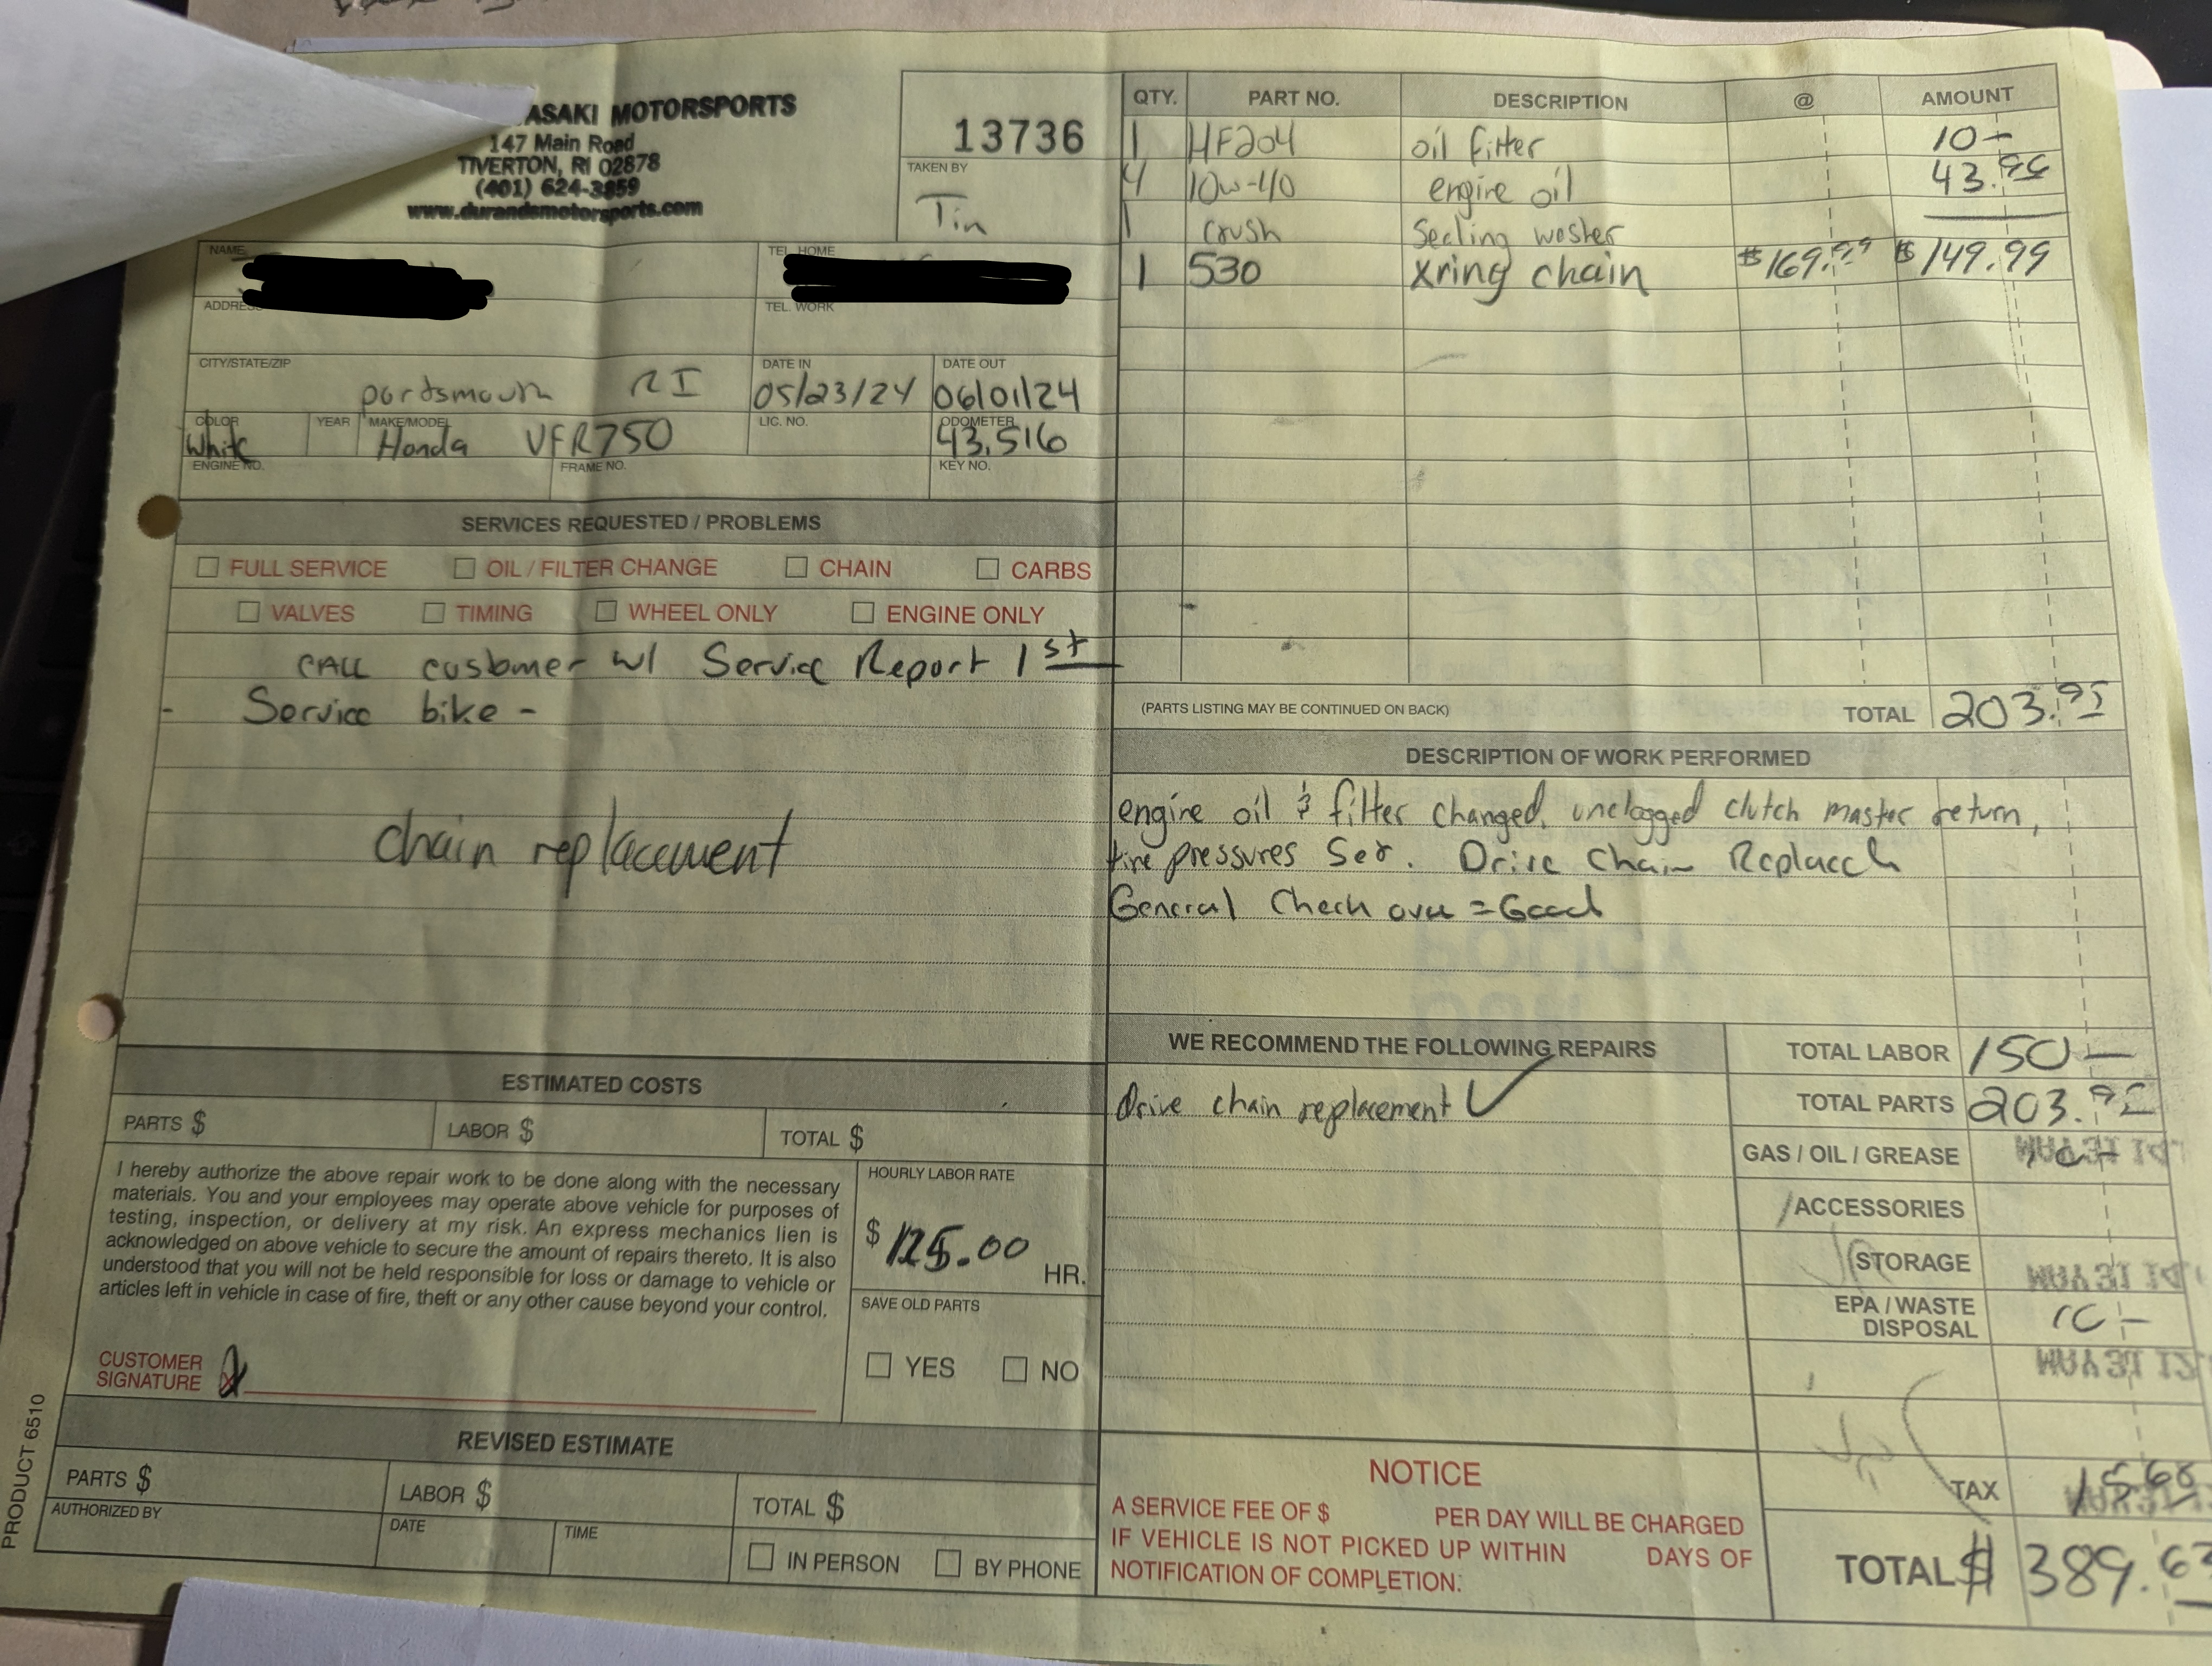 ASAKI MOTORSPORTS
147 Main Road
TIVERTON, RI 02878
(401) 624-3859
www.durandsmotorsports.com
13736
TAKEN BY
Tin
NAME
TEL. HOME
ADDRES
TEL. WORK
CITY/STATE/ZIP
portsmouth RI
DATE IN
05/23/24
DATE OUT
06/01/24
COLOR
White
YEAR
MAKE/MODEL
Honda VFR750
LIC. NO.
ODOMETER
43,516
ENGINE NO.
FRAME NO.
KEY NO.
SERVICES REQUESTED / PROBLEMS
FULL SERVICE OIL / FILTER CHANGE CHAIN CARBS
VALVES TIMING WHEEL ONLY ENGINE ONLY
CALL customer w/ Service Report 1st
- Service bike -
chain replacement
ESTIMATED COSTS
PARTS $ LABOR $ TOTAL $
I hereby authorize the above repair work to be done along with the necessary
materials. You and your employees may operate above vehicle for purposes of
testing, inspection, or delivery at my risk. An express mechanics lien is
acknowledged on above vehicle to secure the amount of repairs thereto. It is also
understood that you will not be held responsible for loss or damage to vehicle or
articles left in vehicle in case of fire, theft or any other cause beyond your control.
HOURLY LABOR RATE
$ 125.00 HR.
SAVE OLD PARTS
YES NO
CUSTOMER
SIGNATURE X
REVISED ESTIMATE
PARTS $ LABOR $ TOTAL $
AUTHORIZED BY DATE TIME
IN PERSON BY PHONE
PRODUCT 6510
QTY. PART NO. DESCRIPTION @ AMOUNT
1 HF204 oil filter 10-
4 10w-40 engine oil 43.96
1 crush Sealing washer
1 530 Xring chain $169.99 $149.99
(PARTS LISTING MAY BE CONTINUED ON BACK) TOTAL 203.95
DESCRIPTION OF WORK PERFORMED
engine oil & filter changed, unclogged clutch master return,
tire pressures Set. Drive Chain Replaced
General Check over = Good
WE RECOMMEND THE FOLLOWING REPAIRS
Drive chain replacement ✓
TOTAL LABOR 150 -
TOTAL PARTS 203.95
GAS / OIL / GREASE
ACCESSORIES
STORAGE
EPA / WASTE
DISPOSAL 10 -
TAX 15.68
TOTAL $ 389.63
NOTICE
A SERVICE FEE OF $ PER DAY WILL BE CHARGED
IF VEHICLE IS NOT PICKED UP WITHIN DAYS OF
NOTIFICATION OF COMPLETION.